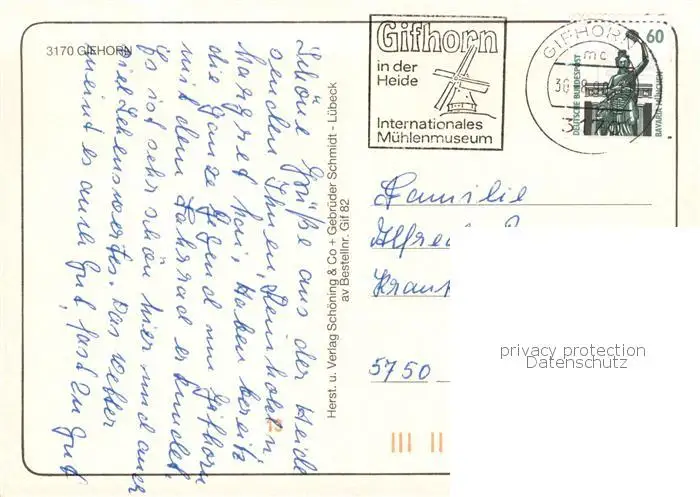 3170 GIFHORN
Schöne Grüße aus der Heide
senden Ihnen, Reinhold u.
Margret hoi, Haben bereits
die ganze Gegend um Gifhorn
mit dem Fahrrad erkundet.
Es ist sehr schön hier und auch
viel Sehenswertes. Das Wetter
meint es auch gut, fast zu gut
Herst. u. Verlag Schöning & Co + Gebrüder Schmidt - Lübeck
av Bestellnr. Gif 82
Gifhorn
in der
Heide
Internationales
Mühlenmuseum
GIFHORN
mc
60
DEUTSCHE BUNDESPOST
BAVARIA MÜNCHEN
Familie
Alfred
5750
privacy protection
Datenschutz